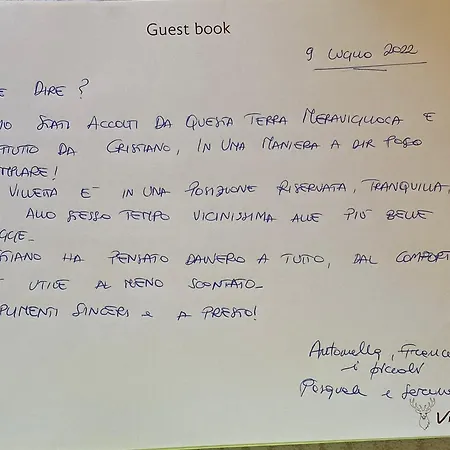 Guest book
9 LUGLIO 2022
E DIRE?
STATI ACCOLTI DA QUESTA TERRA MERAVIGLIOCA E
TUTTO DA CRISTIANO, IN UNA MANIERA A DIR POCO
MPLARE!
VILLETTA E' IN UNA POSIZIONE RISERVATA, TRANQUILLA,
ALLO STESSO TEMPO VICINISSIMA ALLE PIÙ BELLE
GGE-
STIANO HA PENSATO DAVVERO A TUTTO, DAL COMFORT
UTILE AL MENO SCONTATO-
PLIMENTI SINCERI e A PRESTO!
Antonella, France
i piccoli
Pasquale e